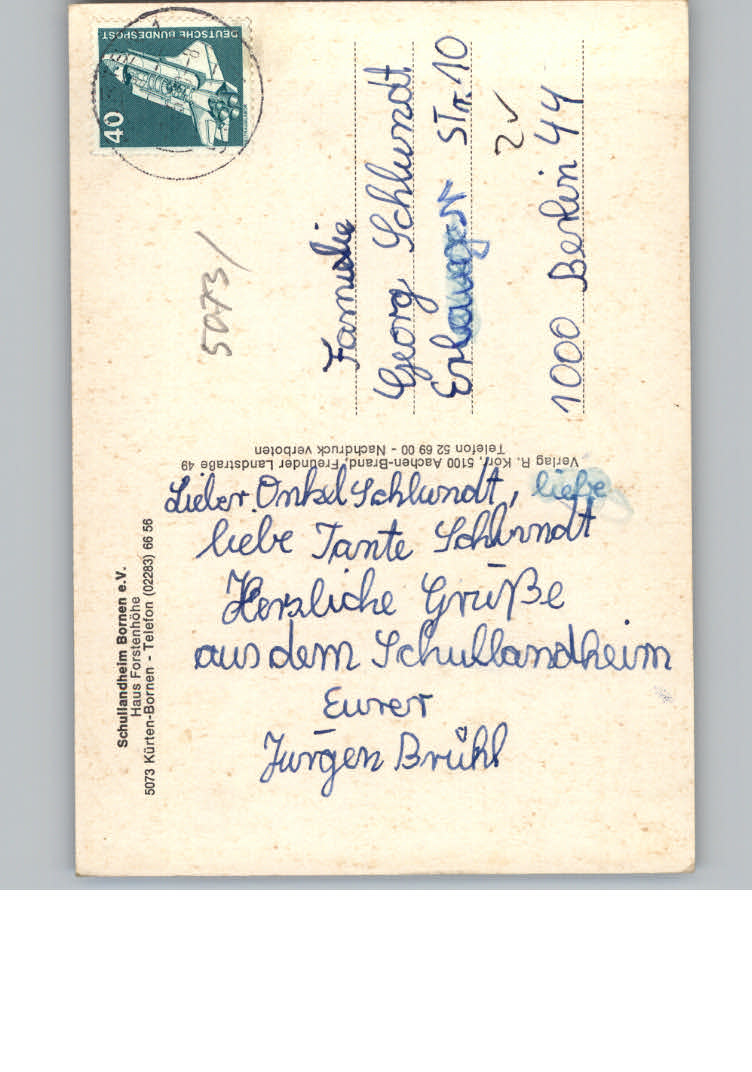 DEUTSCHE BUNDESPOST
40
5073
Familie
Georg Schlundt
Erlanger Str. 10
1000 Berlin 44
Verlag R. Korr, 5100 Aachen-Brand, Freunder Landstraße 49
Telefon 52 69 00 - Nachdruck verboten
Schullandheim Bornen e.V.
Haus Forstenhöhe
5073 Kürten-Bornen - Telefon (02283) 66 56
Lieber Onkel Schlundt, liebe
liebe Tante Schlundt
Herzliche Grüße
aus dem Schullandheim
Eurer
Jürgen Brühl